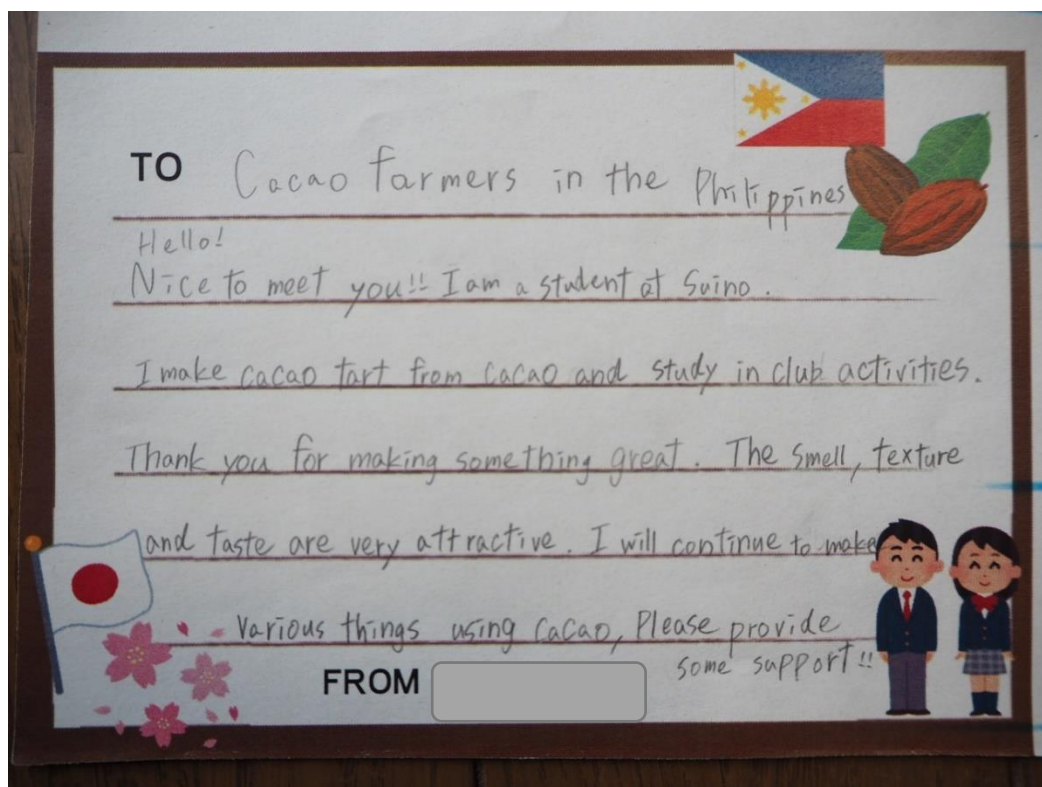 TO Cacao farmers in the Philippines
Hello!
Nice to meet you!! I am a student at Suino.
I make cacao tart from cacao and study in club activities.
Thank you for making something great. The smell, texture
and taste are very attractive. I will continue to make
various things using cacao, Please provide
some support!!
FROM